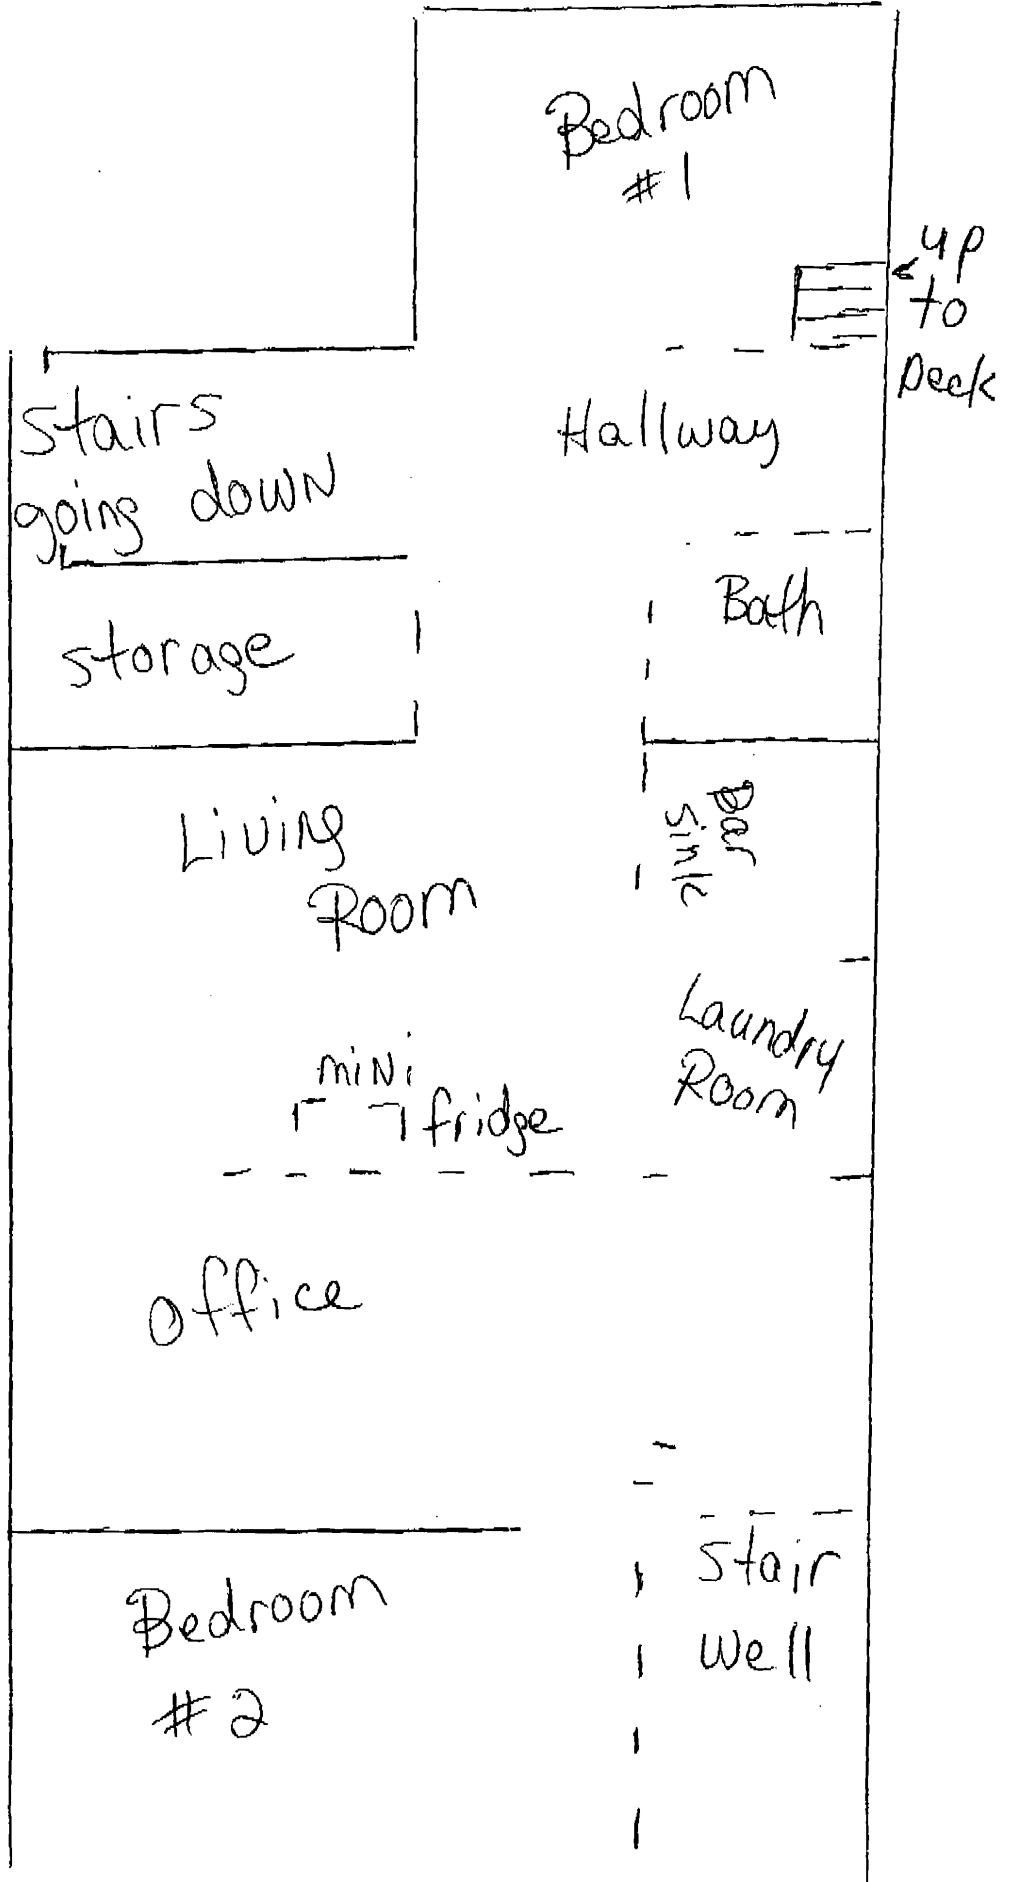 Bedroom
#1
up
to
Deck
Stairs
going down
Hallway
Bath
storage
Living
Room
Bar
sink
Laundry
Room
miNi
fridge
office
Bedroom
#2
Stair
well